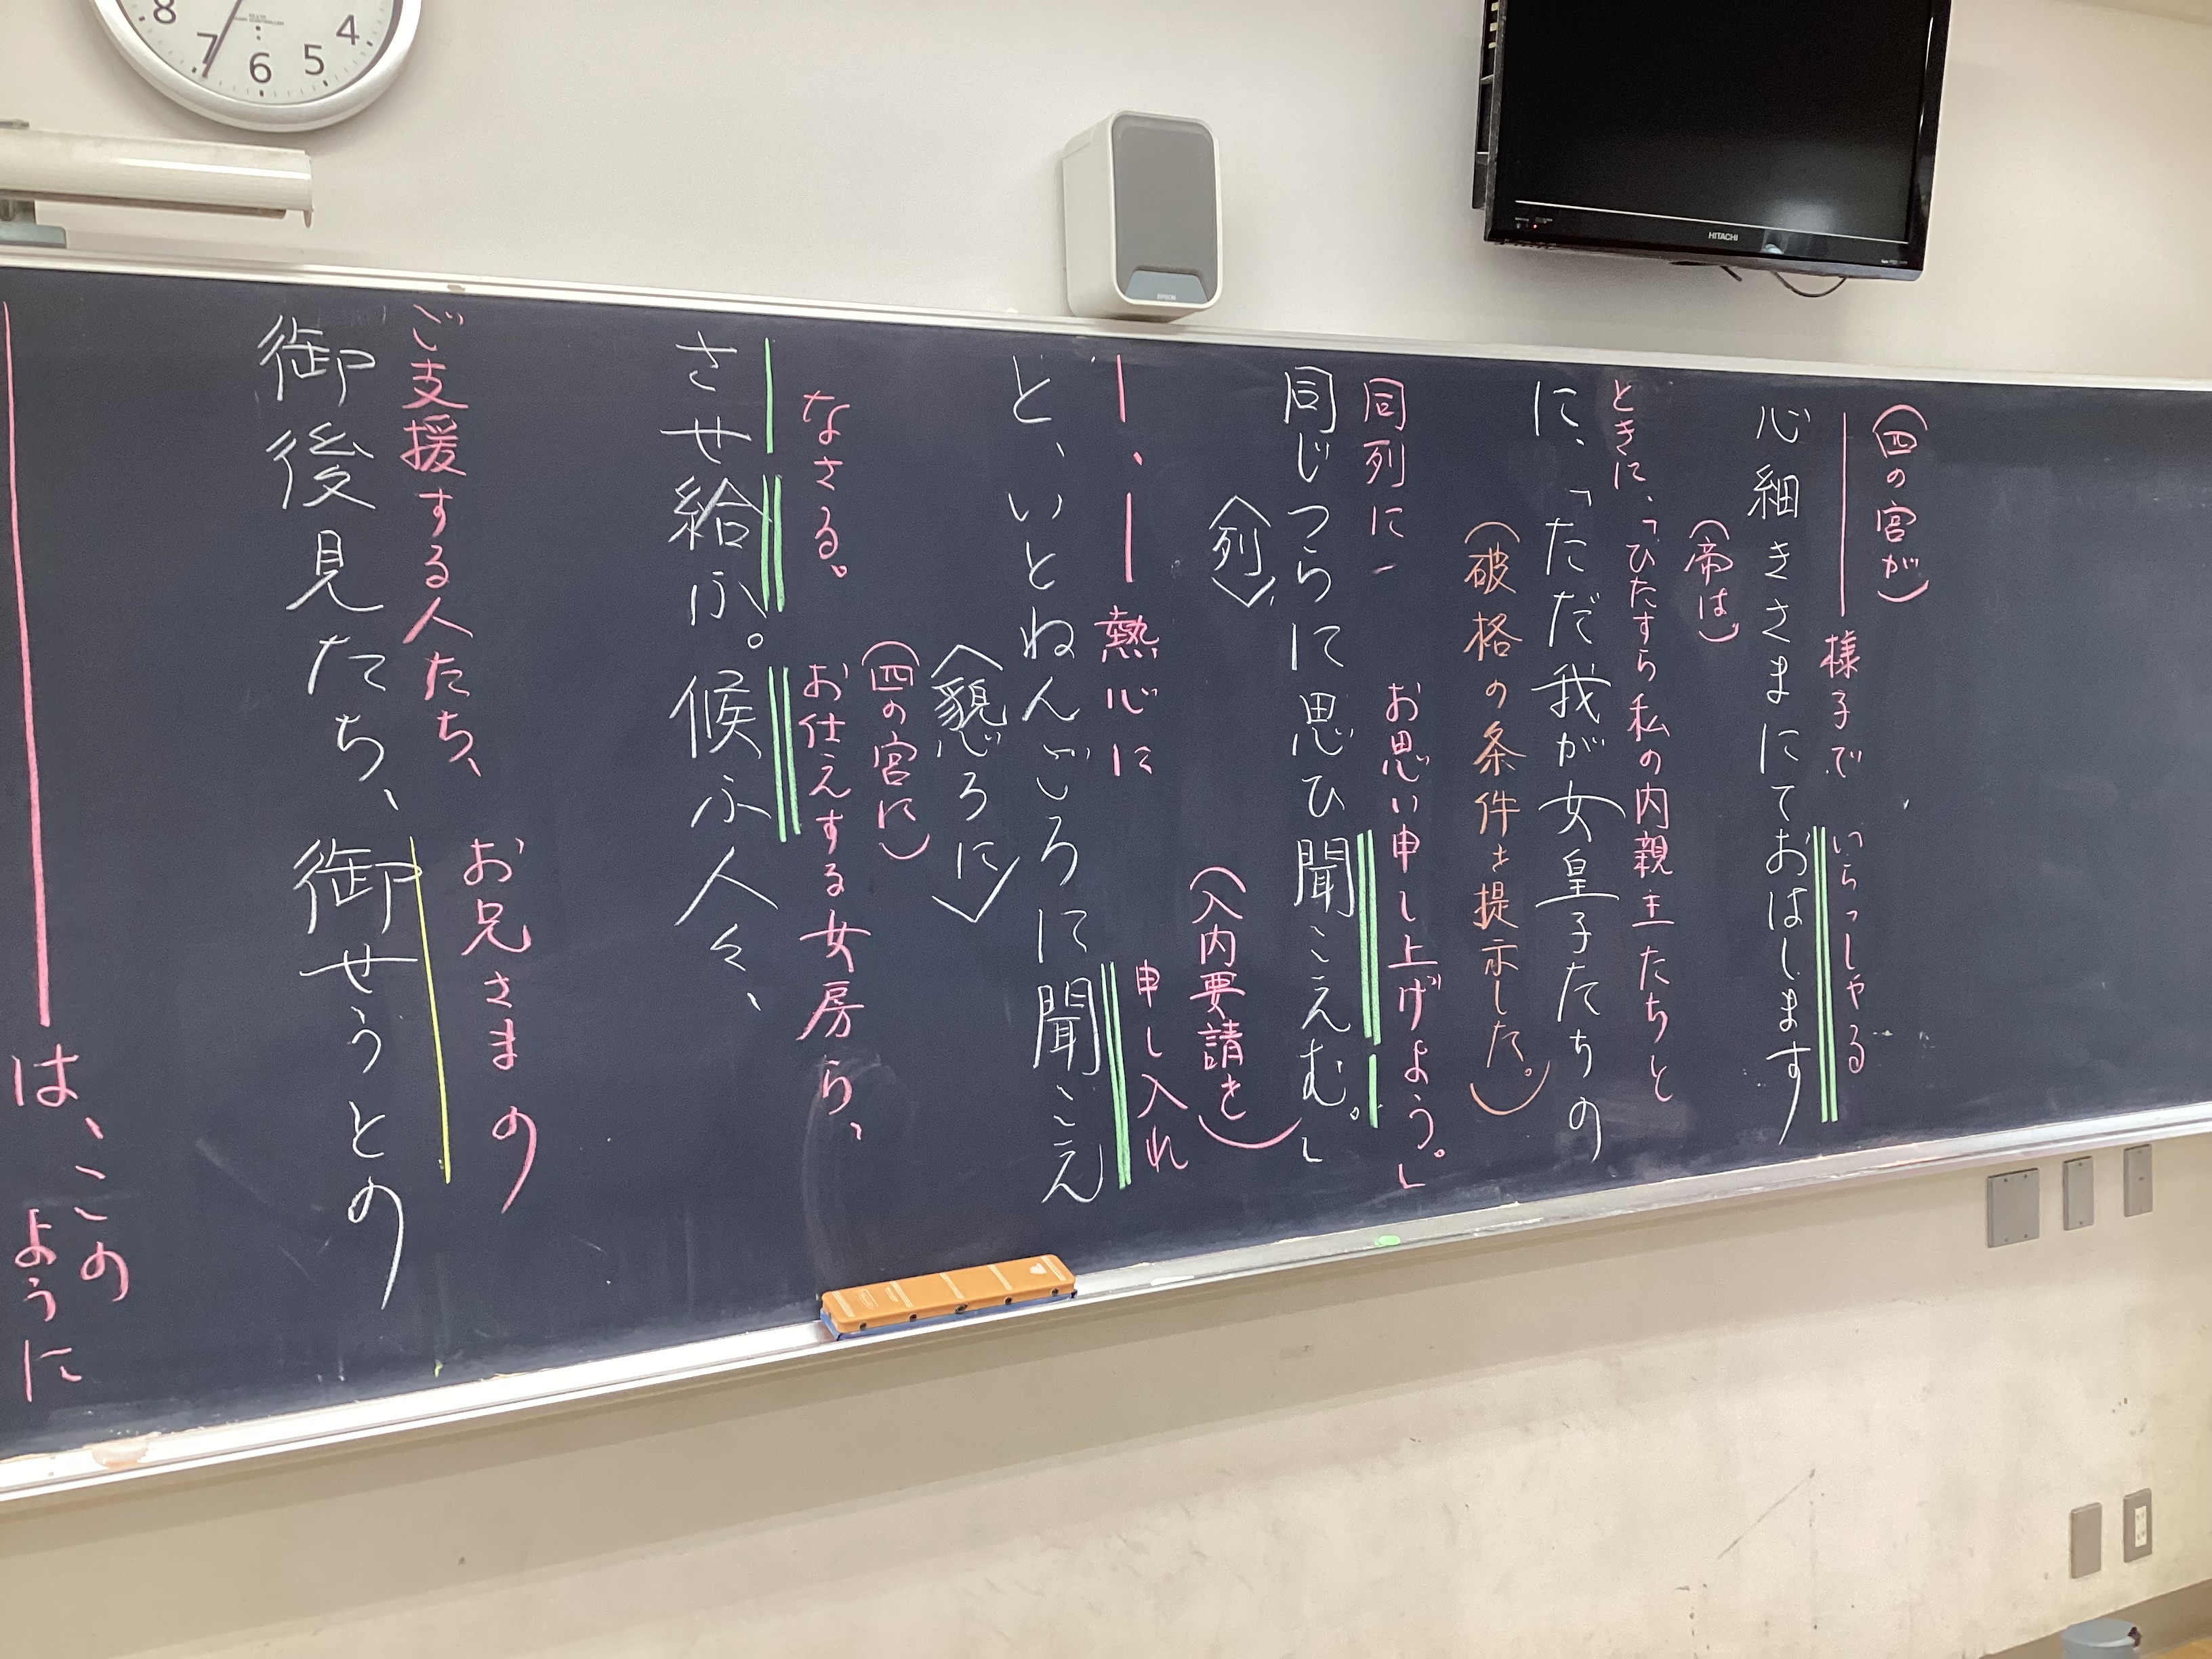 8
7
6
5
4
HITACHI
EPSON
(四の宮が)
様子で いらっしゃる
心細きさまにておはします
(帝は)
ときに、「ひたすら私の内親王たちと
に、「ただ我が女皇子たちの
(破格の条件を提示した。)
同列に お思い申し上げよう。」
同じつらに思ひ聞こえむ。」
〈列〉
(入内要請を)
、 熱心に 申し入れ
と、いとねんごろに聞こえ
〈懇ろに〉
(四の宮に)
なさる。 お仕えする女房ら、
させ給ふ。候ふ人々、
お兄さまの
ご支援する人たち、
御後見たち、御せうとの
は、このように